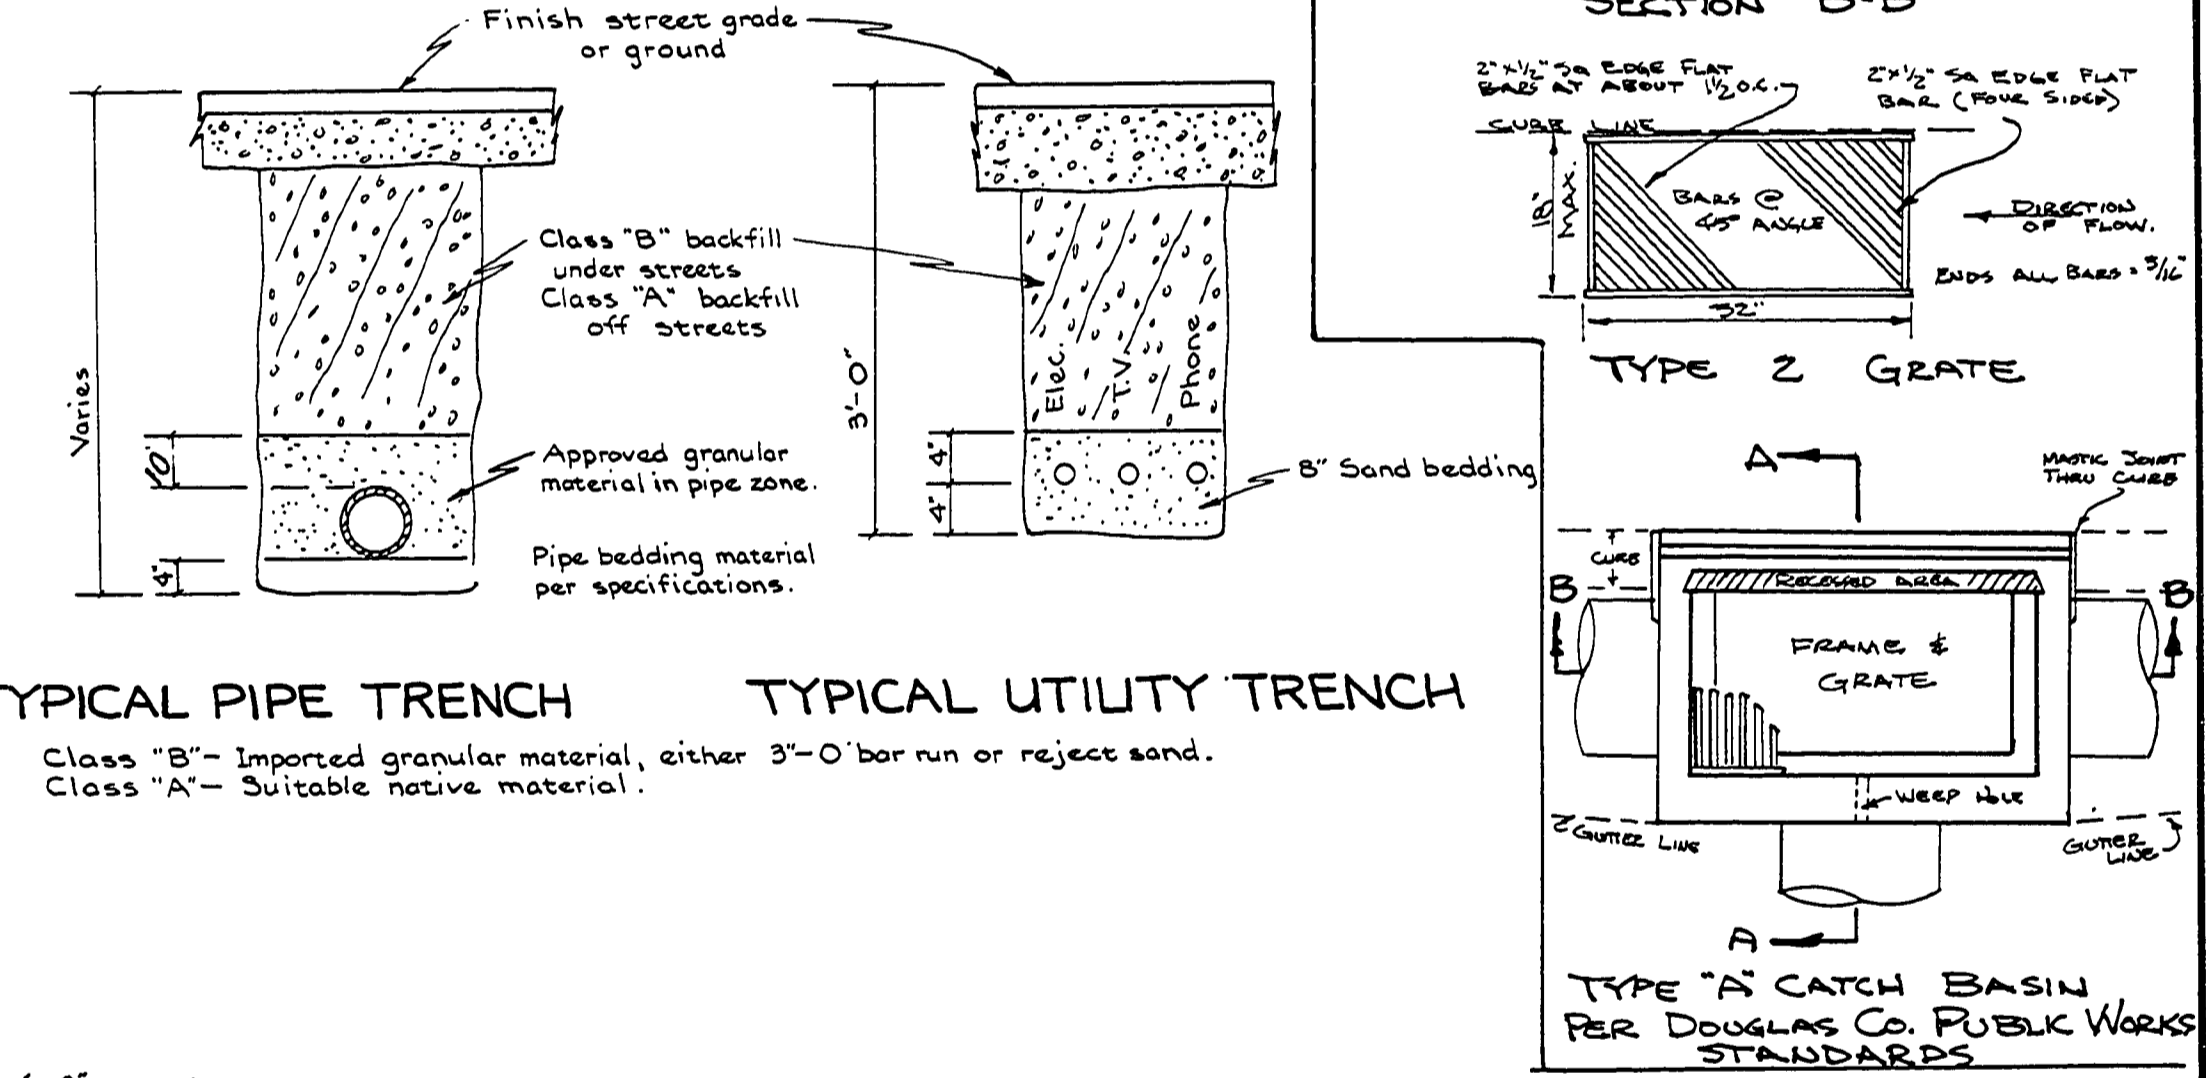 Finish street grade
or ground
Varies
10"
4"
Class "B" backfill
under streets
Class "A" backfill
off streets
Approved granular
material in pipe zone.
Pipe bedding material
per specifications.
3'-0"
4"
4"
Elec.
T.V.
Phone
8" Sand bedding
YPICAL PIPE TRENCH
TYPICAL UTILITY TRENCH
Class "B"- Imported granular material, either 3"-0 bar run or reject sand.
Class "A"- Suitable native material.
SECTION B-B
2"x1/2" SQ EDGE FLAT
BARS AT ABOUT 1 1/2 O.C.
2"x1/2" SQ EDGE FLAT
BAR (FOUR SIDED)
CURB LINE
18"
MAX.
BARS @
45° ANGLE
DIRECTION
OF FLOW.
ENDS ALL BARS = 3/16"
32"
TYPE 2 GRATE
A
MASTIC JOINT
THRU CURB
CURB
RECESSED AREA
B
B
FRAME &
GRATE
WEEP HOLE
GUTTER LINE
GUTTER
LINE
A
TYPE "A" CATCH BASIN
PER DOUGLAS CO. PUBLIC WORKS
STANDARDS